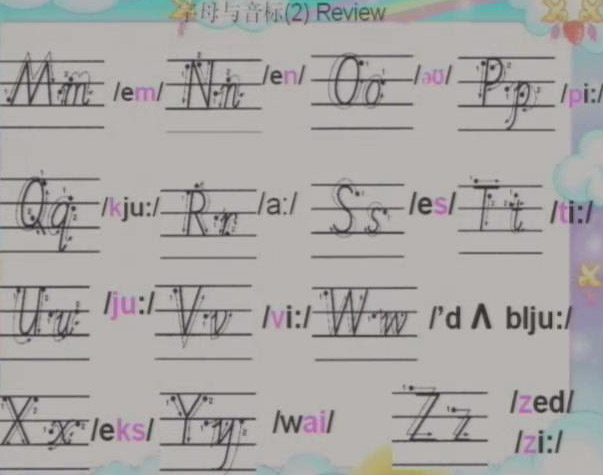 字母与音标(2) Review
Mm /em/ Nn /en/ Oo /əʊ/ Pp /pi:/
Qq /kju:/ Rr /a:/ Ss /es/ Tt /ti:/
Uu /ju:/ Vv /vi:/ Ww /'d Λ blju:/
Xx /eks/ Yy /wai/ Zz /zed/
/zi:/